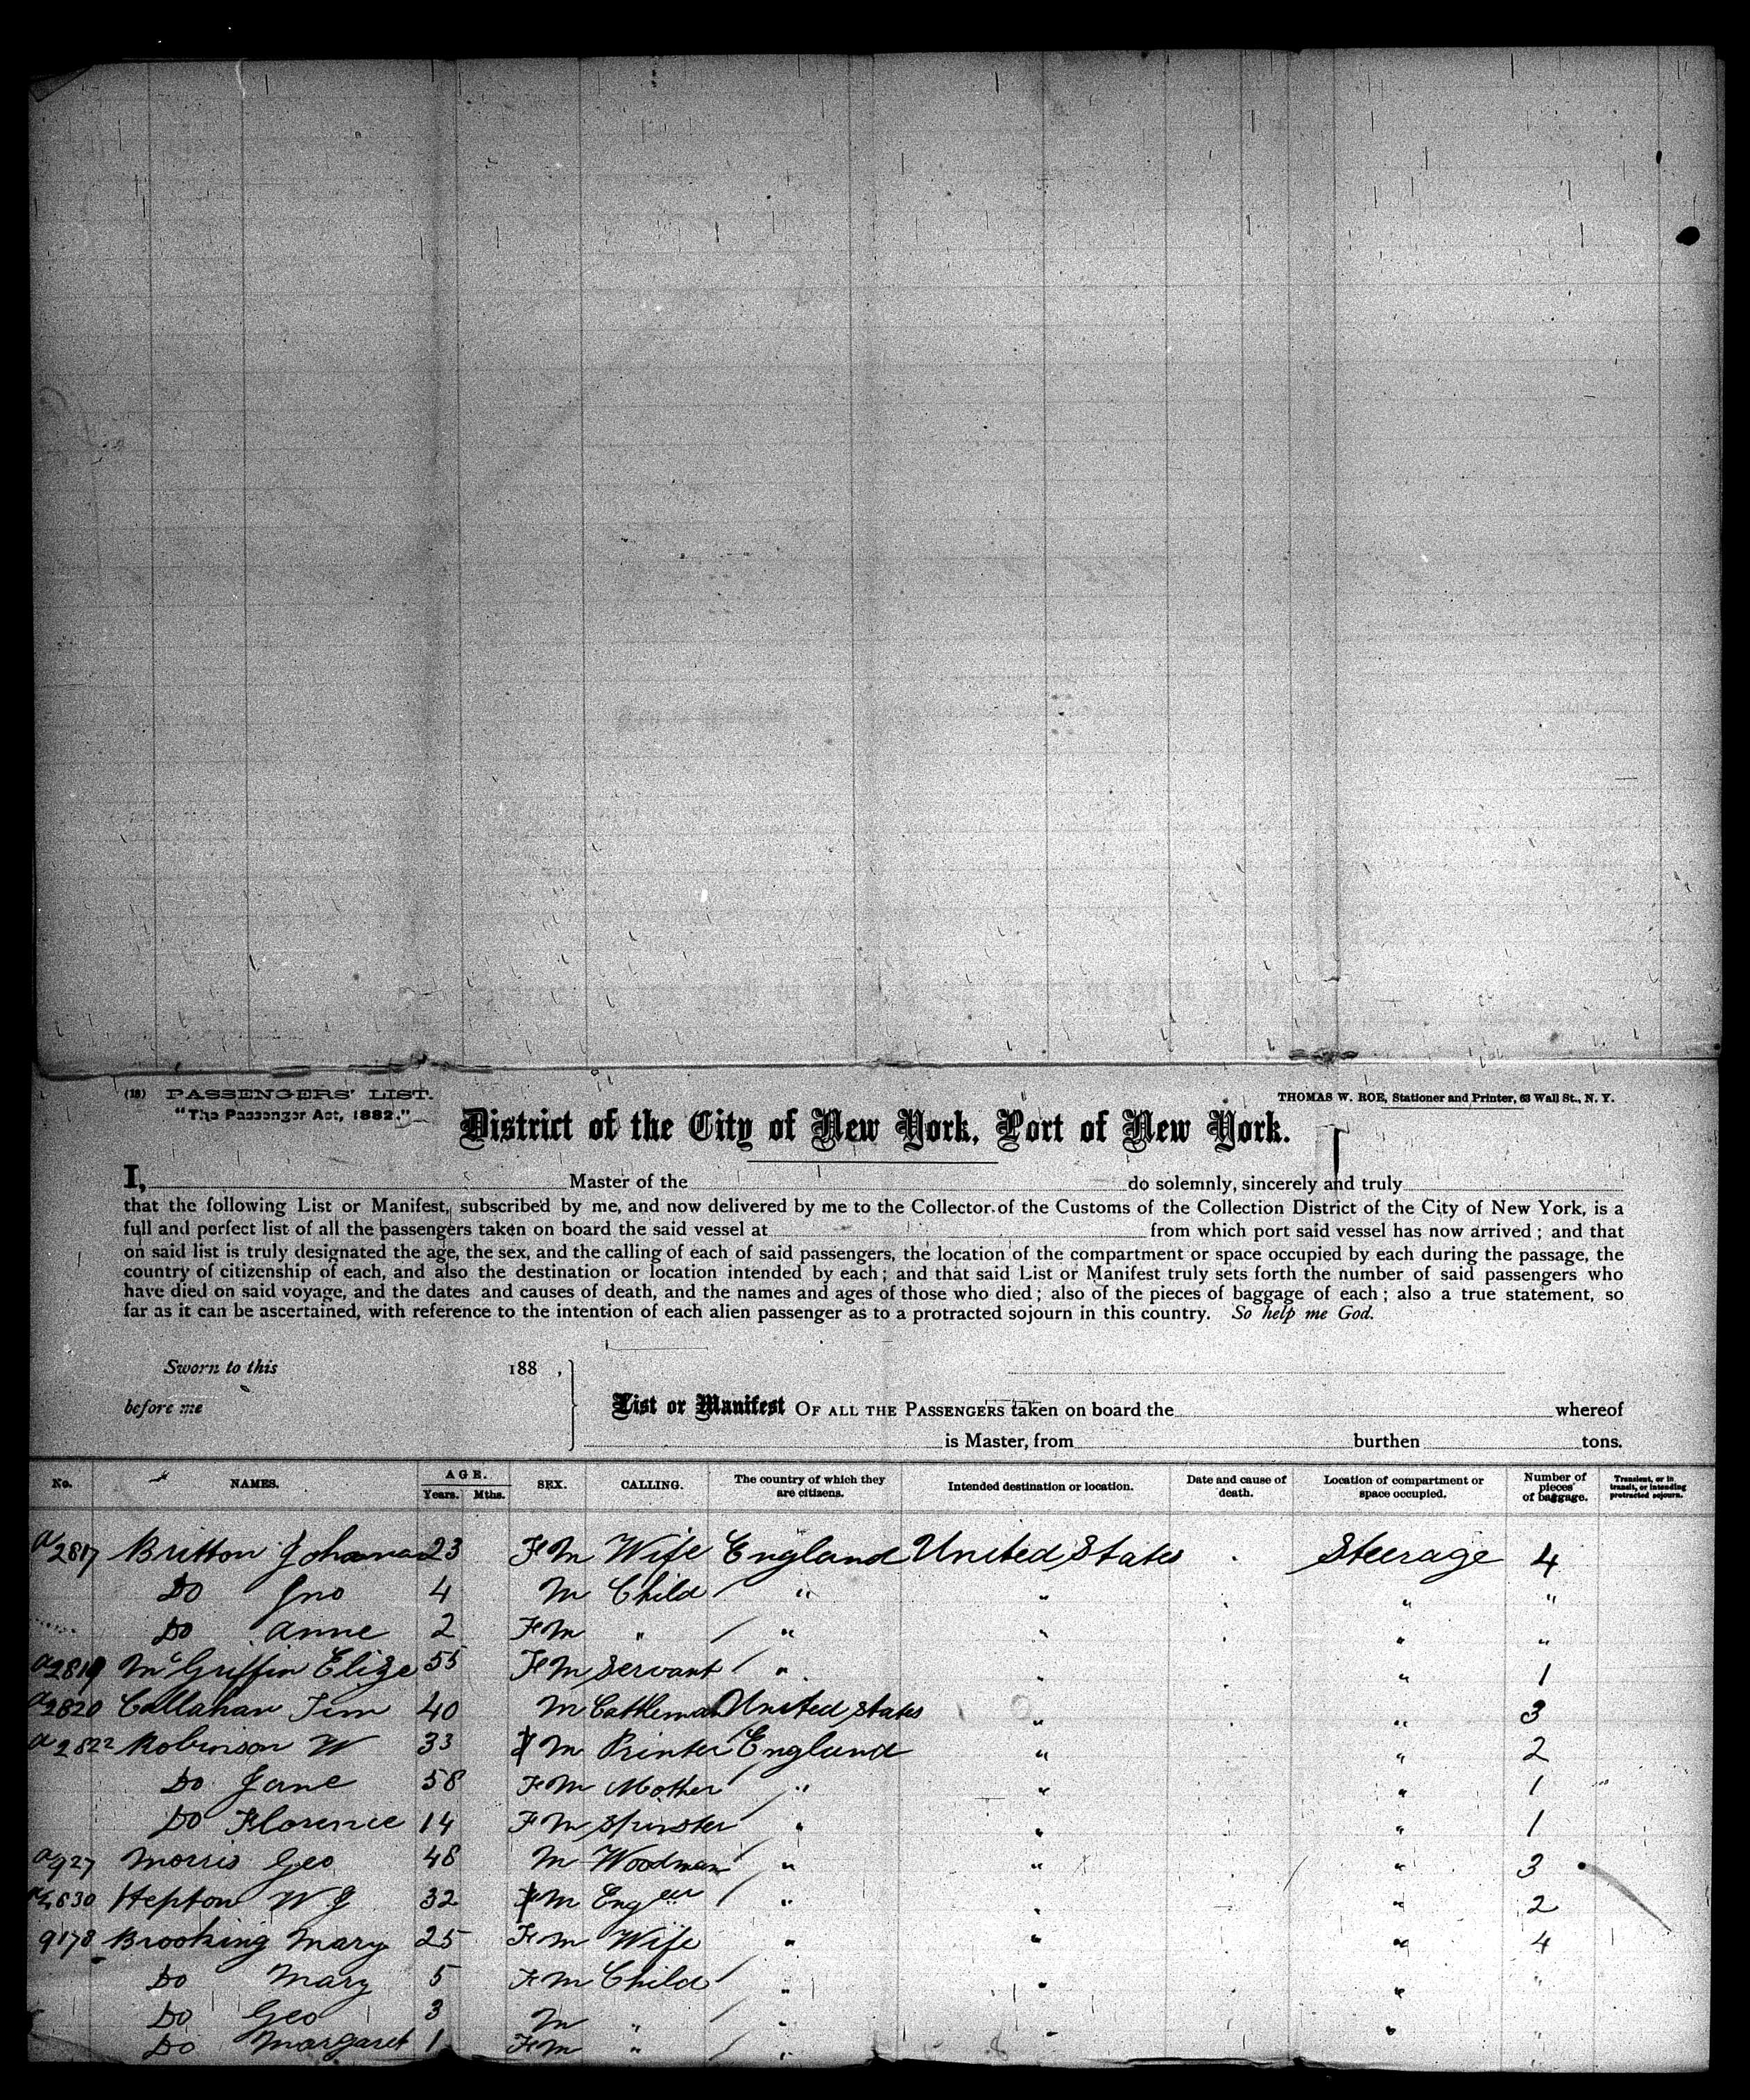 (18) PASSENGERS' LIST. THOMAS W. ROE, Stationer and Printer, 63 Wall St., N. Y.
"The Passenger Act, 1882."
District of the City of New York, Port of New York.
I, Master of the do solemnly, sincerely and truly
that the following List or Manifest, subscribed by me, and now delivered by me to the Collector of the Customs of the Collection District of the City of New York, is a
full and perfect list of all the passengers taken on board the said vessel at from which port said vessel has now arrived; and that
on said list is truly designated the age, the sex, and the calling of each of said passengers, the location of the compartment or space occupied by each during the passage, the
country of citizenship of each, and also the destination or location intended by each; and that said List or Manifest truly sets forth the number of said passengers who
have died on said voyage, and the dates and causes of death, and the names and ages of those who died; also of the pieces of baggage of each; also a true statement, so
far as it can be ascertained, with reference to the intention of each alien passenger as to a protracted sojourn in this country. So help me God.
Sworn to this 188 ,
before me List or Manifest OF ALL THE PASSENGERS taken on board the whereof
is Master, from burthen tons.
No. NAMES. AGE. Years. Mths. SEX. CALLING. The country of which they are citizens. Intended destination or location. Date and cause of death. Location of compartment or space occupied. Number of pieces of baggage. Transient, or in transit, or intending protracted sojourn.
a2817 Britton Johanna 23 Fm Wife England United States Steerage 4
Do Jno 4 m Child " " " "
Do Anne 2 Fm " " " " "
a2819 McGriffin Elize 55 Fm Servant " " " 1
a2820 Callahan Tim 40 m Cattleman United States " " 3
a2822 Robinson W 33 m Printer England " " 2
Do Jane 58 Fm Mother " " " 1
Do Florence 14 Fm Spinster " " " 1
a927 Morris Geo 48 m Woodman " " " 3
a2830 Hepton W J 32 m Engeer " " " 2
9178 Brooking Mary 25 Fm Wife " " " 4
Do Mary 5 Fm Child " " " "
Do Geo 3 m " " " "
Do Margaret 1 Fm " " " "